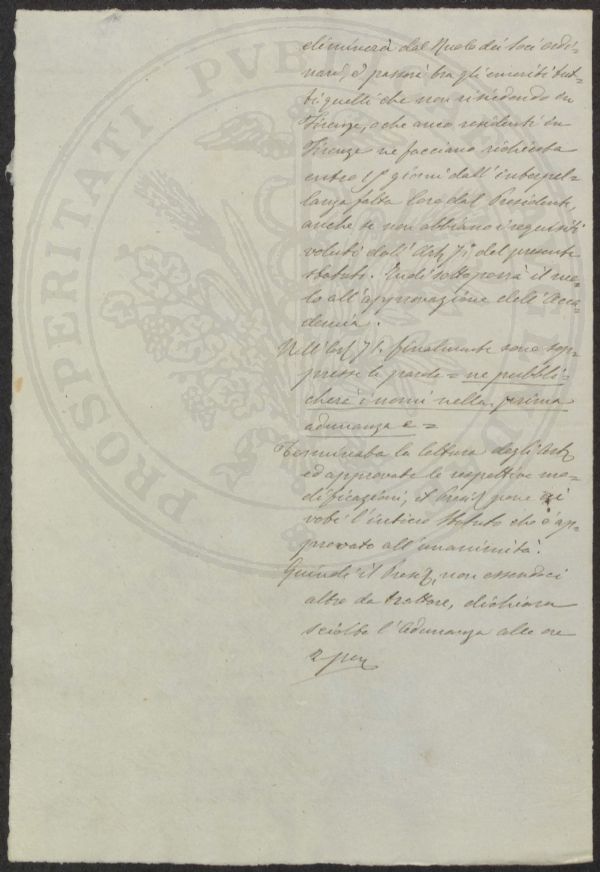 eliminerà dal Ruolo dei Soci ordi-
nari, e passerà tra gli emeriti tut-
ti quelli che non risiedendo in
Firenze, o che anco residenti in
Firenze ne facciano richiesta
entro 15 giorni dall'interpel-
lanza fatta loro dal Presidente,
anche se non abbiano i requisiti
voluti dall'Art. 7i del presente
Statuto. Indi sottoporrà il ruo-
lo all'approvazione dell'Acca-
demia.
Nell'Art. 71. finalmente sono sop-
presse le parole = ne pubbli-
cherà i nomi nella prima
adunanza e =
Terminata la lettura degli Art.
ed approvate le respettive mo-
dificazioni, il Presid. pone ai
voti l'intiero Statuto che è ap-
provato all'unanimità.
Quindi il Presid., non essendoci
altro da trattare, dichiara
sciolta l'Adunanza alle ore
2 pom
PROSPERITATI PUBLICAE